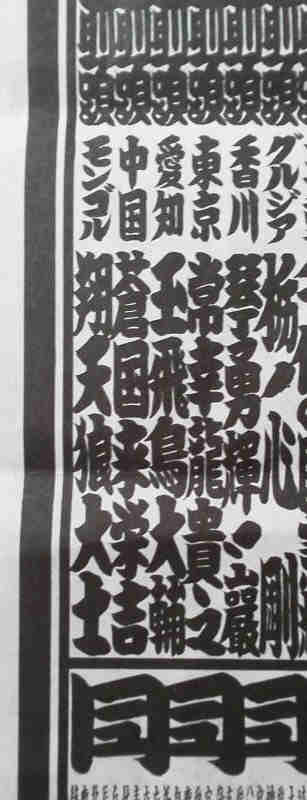 前頭 グルジア 栃ノ心 剛
前頭 香川 琴勇輝 一巖
前頭 東京 常幸龍 貴之
前頭 愛知 玉飛鳥 大輔
前頭 中国 蒼国来 栄吉
前頭 モンゴル 翔天狼 大士
同
同
同